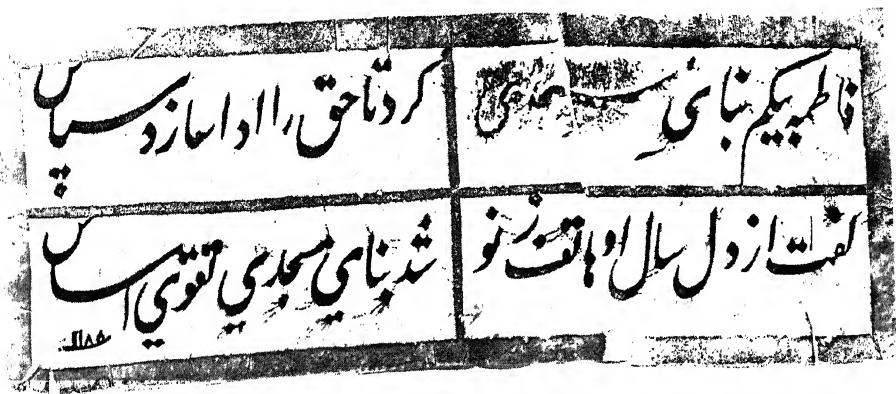 فاطمه بیکم بنائی مسجدی
کرد تا حق را ادا سازد سپاس
کفت از دل سال او هاتف ز نو
شد بنای مسجدی تقوی اساس
۱۱۸۵